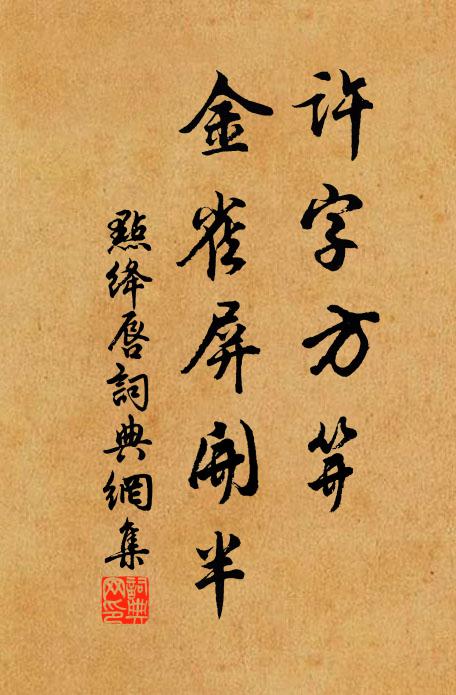 許字方笄
金雀屏開半
點絳唇詞典網集
詞典
网印